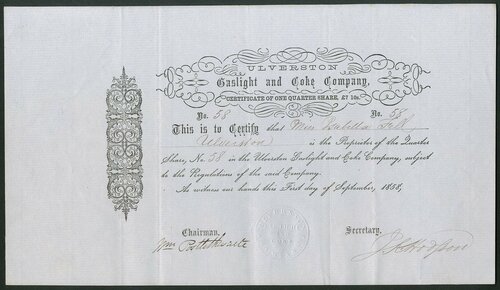 ULVERSTON
Gaslight and Coke Company,
CERTIFICATE OF ONE QUARTER SHARE, £7 10s.
No. 58 No. 58
This is to Certify that Miss Isabella Fell
Ulverston is the Proprietor of the Quarter
Share, No. 58 in the Ulverston Gaslight and Coke Company, subject
to the Regulations of the said Company.
As witness our hands this First day of September, 1858,
Chairman. Secretary.
Wm Postlethwaite J Hodgson